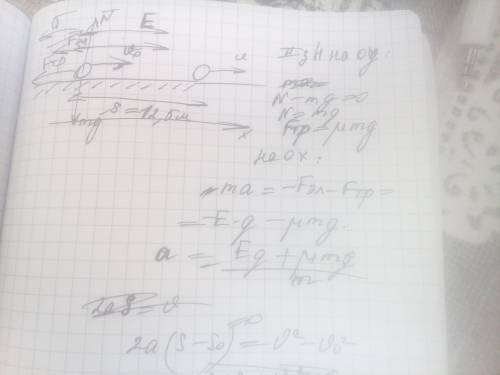 a N E
Fэл
Fтр v₀ u
mg S = 12,5м x
II з Н на оу:
N - mg = 0
N = mg
Fтр = μmg
на ох:
-ma = -Fэл - Fтр =
= -E·q - μmg
a = Eq + μmg / m
2aS = v
2a(S - S₀) = v² - v₀²